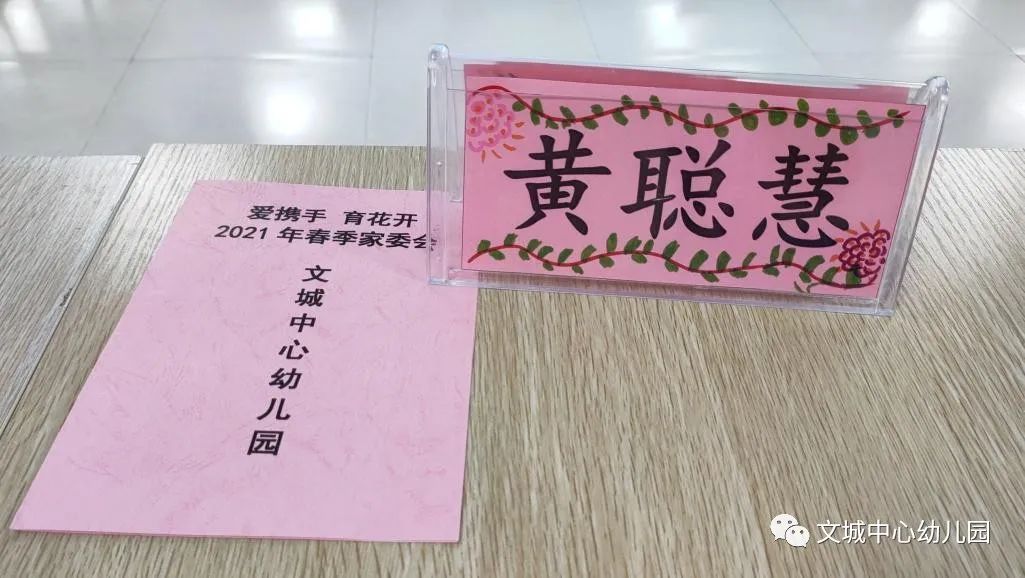 爱携手 育花开
2021 年春季家委会
文城中心幼儿园
黄聪慧
文城中心幼儿园